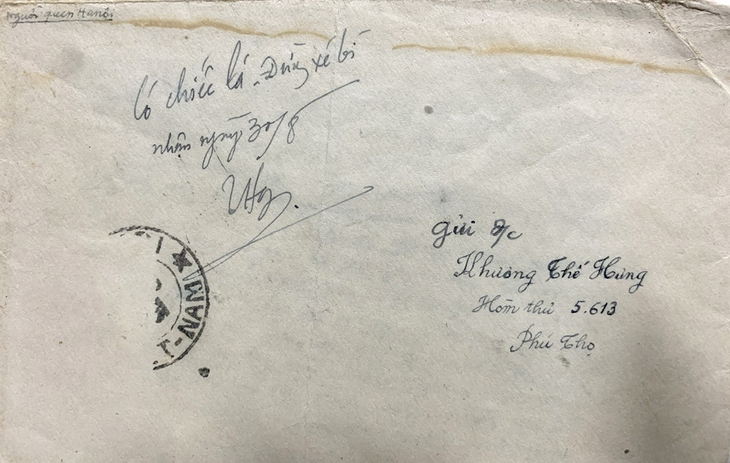 Người quen Hanôi
Có chiếc lá. Đừng xé bì
nhận ngày 30/8
gửi đ/c
Khương Thế Hưng
Hòm thư 5.613
Phú Thọ
T-NAM